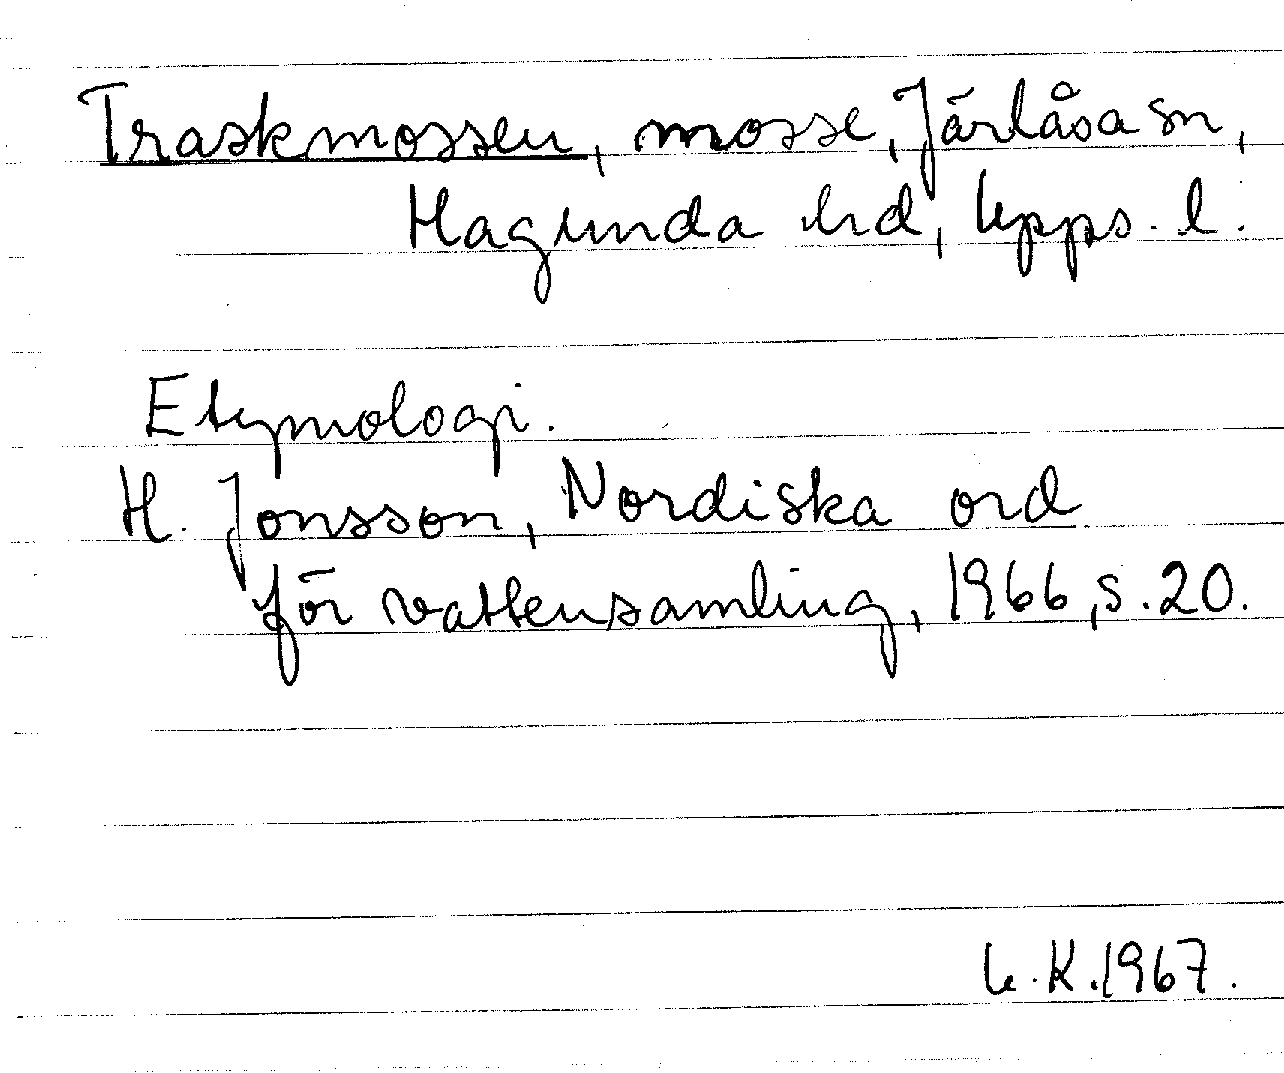 Traskmossen, mosse, Järlåsa sn,
Hagunda hd, Upps. l.
Etymologi.
H. Jonsson, Nordiska ord
för vattensamling, 1966, s. 20.
U.K. 1967.